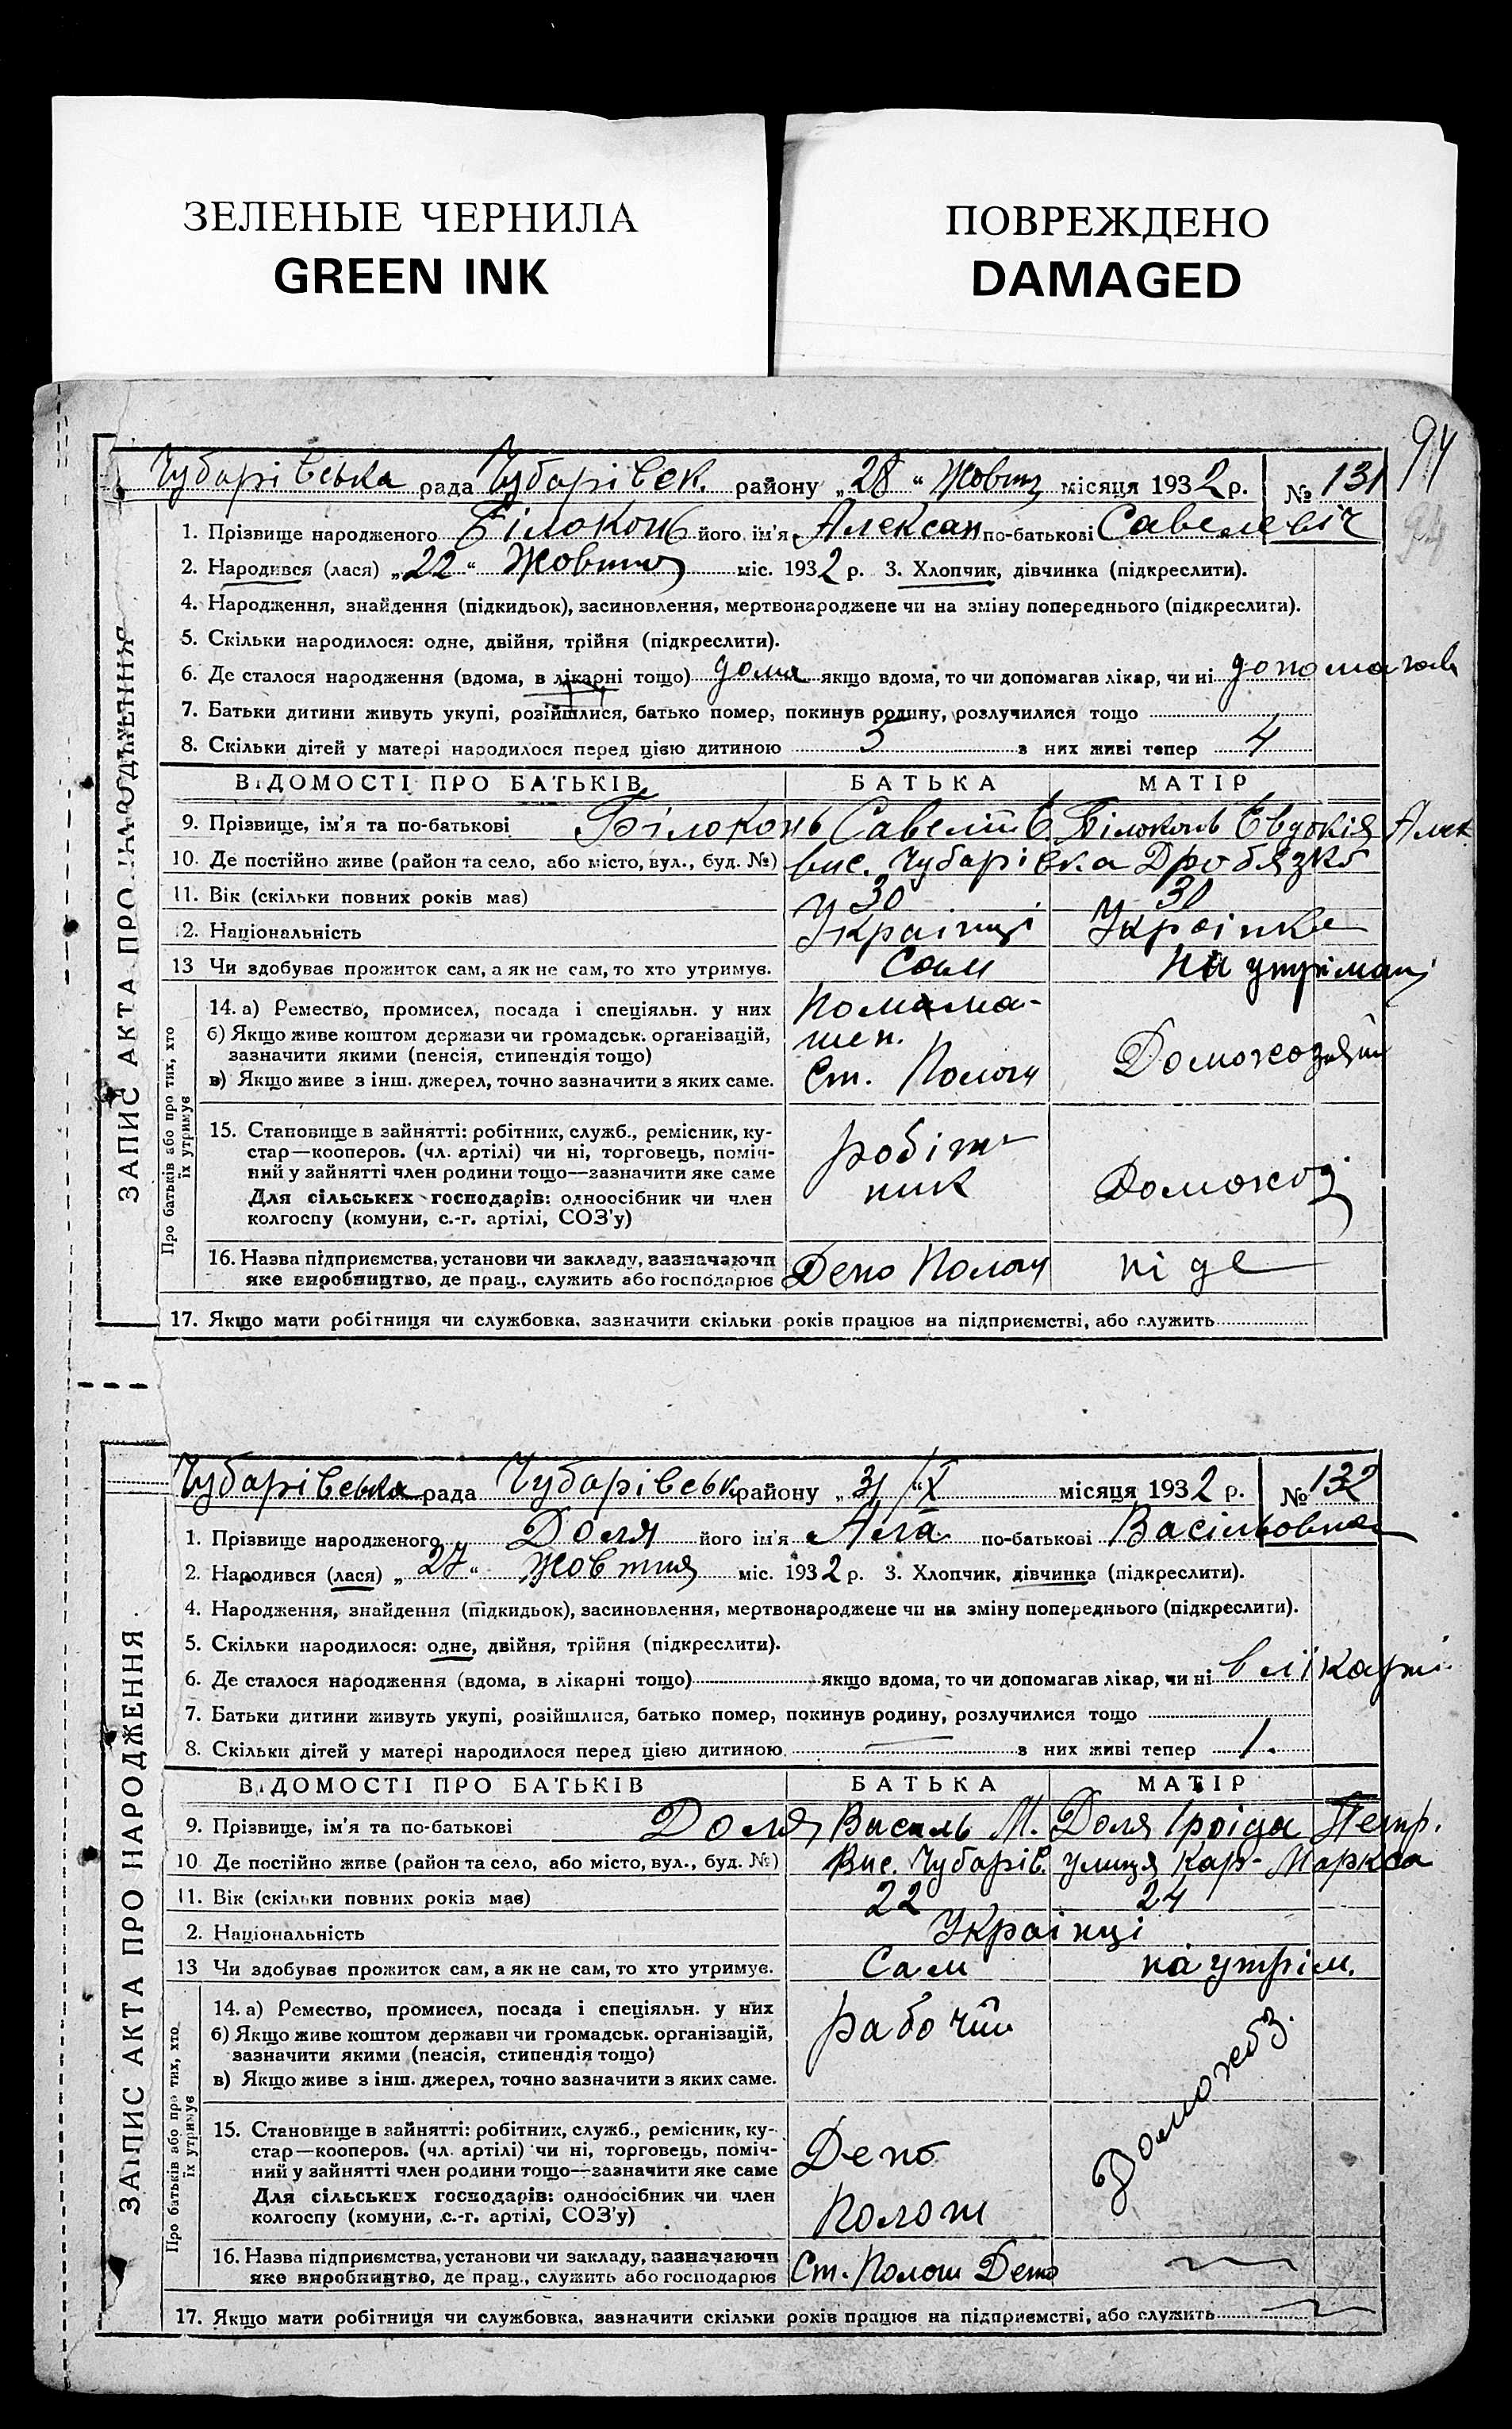 ЗЕЛЕНЫЕ ЧЕРНИЛА
GREEN INK
ПОВРЕЖДЕНО
DAMAGED
94
94
ЗАПИС АКТА ПРО НАРОДЖЕННЯ
Чубарівська рада Чубарівск. району „28“ Жовтн місяця 1932 р. № 131
1. Прізвище народженого Білоконь його ім'я Алексан по-батькові Савелевіч
2. Народився (лася) „22“ Жовтня міс. 1932 р. 3. Хлопчик, дівчинка (підкреслити).
4. Народження, знайдення (підкидьок), засиновлення, мертвонароджене чи на зміну попереднього (підкреслити).
5. Скільки народилося: одне, двійня, трійня (підкреслити).
6. Де сталося народження (вдома, в лікарні тощо) дома якщо вдома, то чи допомагав лікар, чи ні допомагав
7. Батьки дитини живуть укупі, розійшлися, батько помер, покинув родину, розлучилися тощо
8. Скільки дітей у матері народилося перед цією дитиною 5 з них живі тепер 4
ВІДОМОСТІ ПРО БАТЬКІВ БАТЬКА МАТІР
9. Прізвище, ім'я та по-батькові Білоконь Савелій Е Білоконь Евдокія Алек
10. Де постійно живе (район та село, або місто, вул., буд. №) вис. Чубарівка Дробязко
11. Вік (скільки повних років має) 30 30
12. Національність Українці Українка
13 Чи здобував прожиток сам, а як не сам, то хто утримує. Сам На утрімані
Про батьків або про тих, хто їх утримує
14. а) Ремество, промисел, посада і спеціяльн. у них
б) Якщо живе коштом держави чи громадськ. організацій,
зазначити якими (пенсія, стипендія тощо)
в) Якщо живе з інш. джерел, точно зазначити з яких саме.
Помма-
шен.
Ст. Пологи
Домохозяйк
15. Становище в зайнятті: робітник, служб., ремісник, ку-
стар—кооперов. (чл. артілі) чи ні, торговець, поміч-
ний у зайнятті член родини тощо—зазначити яке саме
Для сільських господарів: одноосібник чи член
колгоспу (комуни, с.-г. артілі, СОЗ'у)
робіт-
ник
Домохоз.
16. Назва підприємства, установи чи закладу, зазначаючи
яке виробництво, де прац., служить або господарює Депо Пологи ніде
17. Якщо мати робітниця чи службовка, зазначити скільки років працює на підприємстві, або служить
ЗАПИС АКТА ПРО НАРОДЖЕННЯ
Чубарівська рада Чубарівськ району „31/“X місяця 1932 р. № 132
1. Прізвище народженого Доля його ім'я Ала по-батькові Васільовна
2. Народився (лася) „27“ Жовтня міс. 1932 р. 3. Хлопчик, дівчинка (підкреслити).
4. Народження, знайдення (підкидьок), засиновлення, мертвонароджене чи на зміну попереднього (підкреслити).
5. Скільки народилося: одне, двійня, трійня (підкреслити).
6. Де сталося народження (вдома, в лікарні тощо) якщо вдома, то чи допомагав лікар, чи ні в лікарні
7. Батьки дитини живуть укупі, розійшлися, батько помер, покинув родину, розлучилися тощо
8. Скільки дітей у матері народилося перед цією дитиною — з них живі тепер 1.
ВІДОМОСТІ ПРО БАТЬКІВ БАТЬКА МАТІР
9. Прізвище, ім'я та по-батькові Доля Василь М. Доля Іроіда Петр.
10 Де постійно живе (район та село, або місто, вул., буд. №) Вис. Чубарів. улиця Кар-Маркса
11. Вік (скільки повних років має) 22 24
2. Національність Українці
13 Чи здобував прожиток сам, а як не сам, то хто утримує. Сам на утрім.
Про батьків або про тих, хто їх утримує
14. а) Ремество, промисел, посада і спеціяльн. у них
б) Якщо живе коштом держави чи громадськ. організацій,
зазначити якими (пенсія, стипендія тощо)
в) Якщо живе з інш. джерел, точно зазначити з яких саме.
рабочий
Домохоз.
15. Становище в зайнятті: робітник, служб., ремісник, ку-
стар—кооперов. (чл. артілі) чи ні, торговець, поміч-
ний у зайнятті член родини тощо—зазначити яке саме
Для сільських господарів: одноосібник чи член
колгоспу (комуни, с.-г. артілі, СОЗ'у)
Депо
Пологи
16. Назва підприємства, установи чи закладу, зазначаючи
яке виробництво, де прац., служить або господарює Ст. Пологи Депо —
17. Якщо мати робітниця чи службовка, зазначити скільки років працює на підприємстві, або служить —